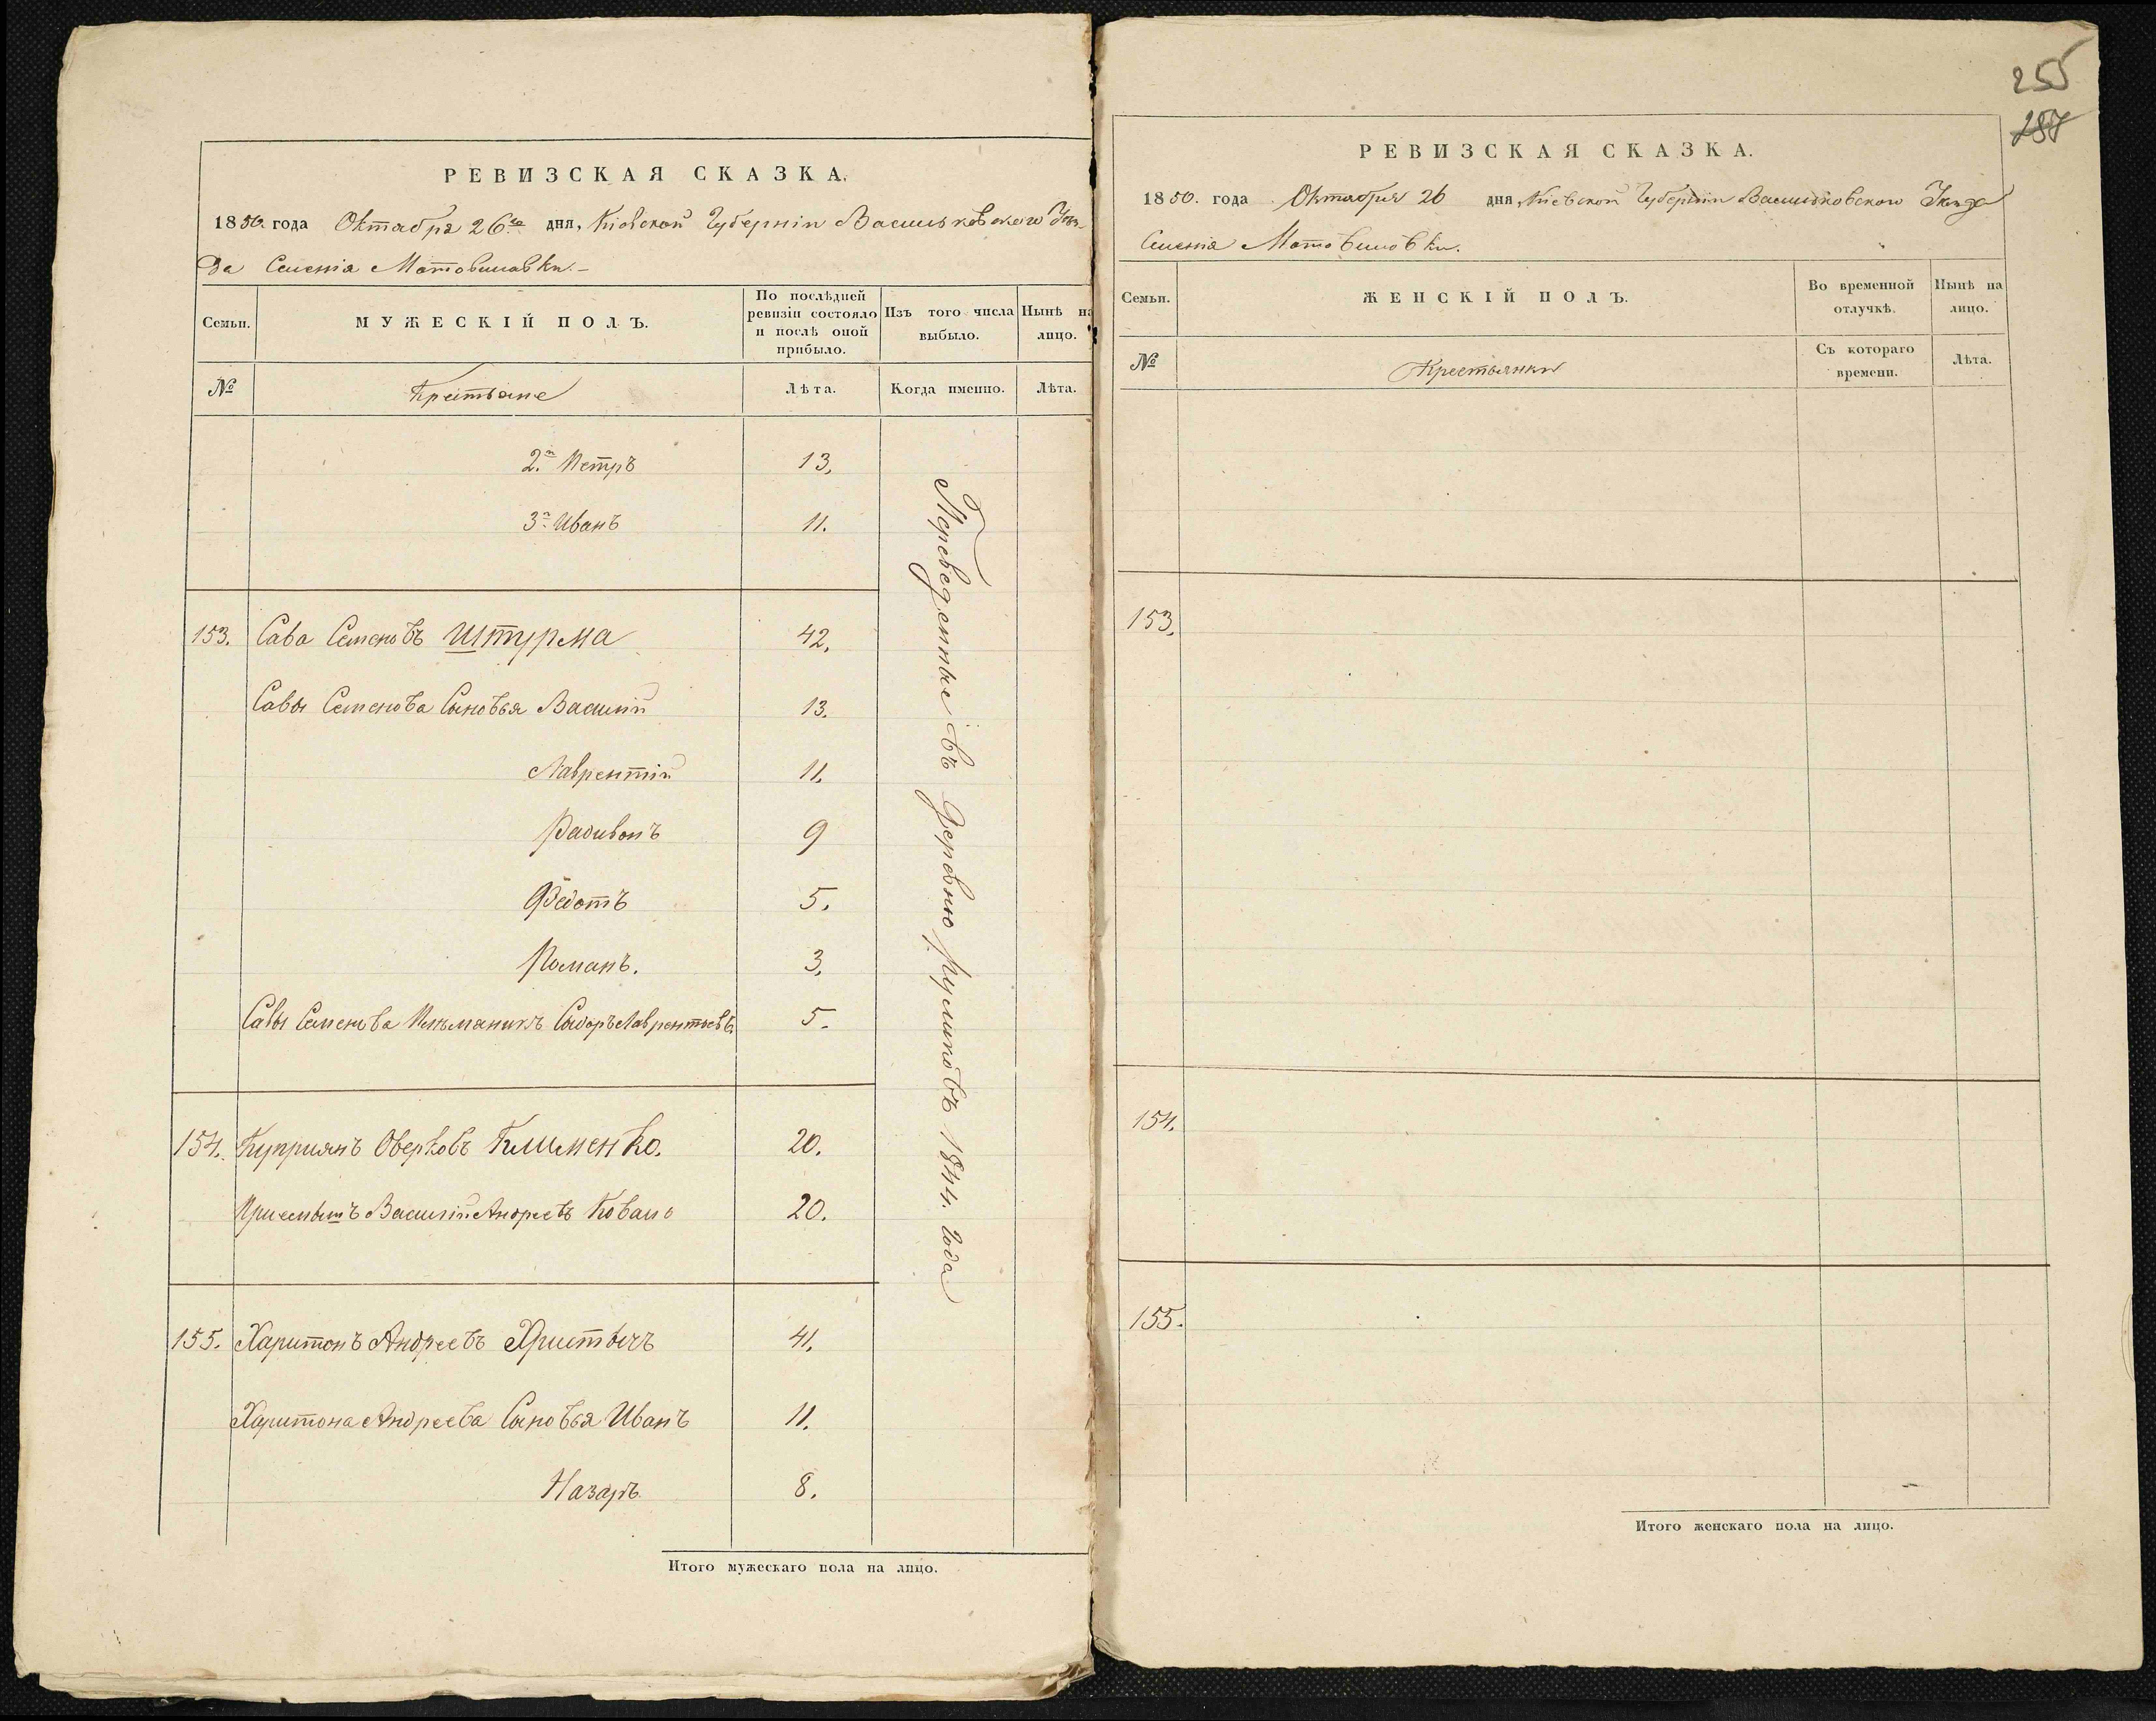 РЕВИЗСКАЯ СКАЗКА.
1850. года Октября 26го дня, Кіевской Губерніи Васильковского Уѣз-
да Селенія Мотовиловки.-
Семьи. МУЖЕСКІЙ ПОЛЪ. По послѣдней ревизіи состояло и послѣ оной прибыло. Изъ того числа выбыло. Нынѣ на лицо.
№ Крестьяне Лѣта. Когда именно. Лѣта.
2.й Петръ 13.
3.й Иванъ 11.
153. Сава Семеновъ Штурма 42.
Савы Семенова Сыновья Василій 13.
Лаврентій 11.
Радивонъ 9
Федотъ 5.
Романъ. 3.
Савы Семенова Племаникъ Сидоръ Лаврентьевъ 5.
154. Куприянъ Оверковъ Клименко. 20.
Приемышъ Василій Андреевъ Коваль 20.
155. Харитонъ Андреевъ Христычъ 41.
Харитона Андреева Сыновья Иванъ 11.
Назаръ 8.
Переведенные въ деревню 1844. года
Итого мужескаго пола на лицо.
255
287
РЕВИЗСКАЯ СКАЗКА.
1850. года Октября 26 дня, Кіевской Губерніи Васильковского Уѣзда
Селенія Мотовиловки.
Семьи. ЖЕНСКІЙ ПОЛЪ. Во временной отлучкѣ. Нынѣ на лицо.
№ Крестьянки Съ котораго времени. Лѣта.
153.
154.
155.
Итого женскаго пола на лицо.